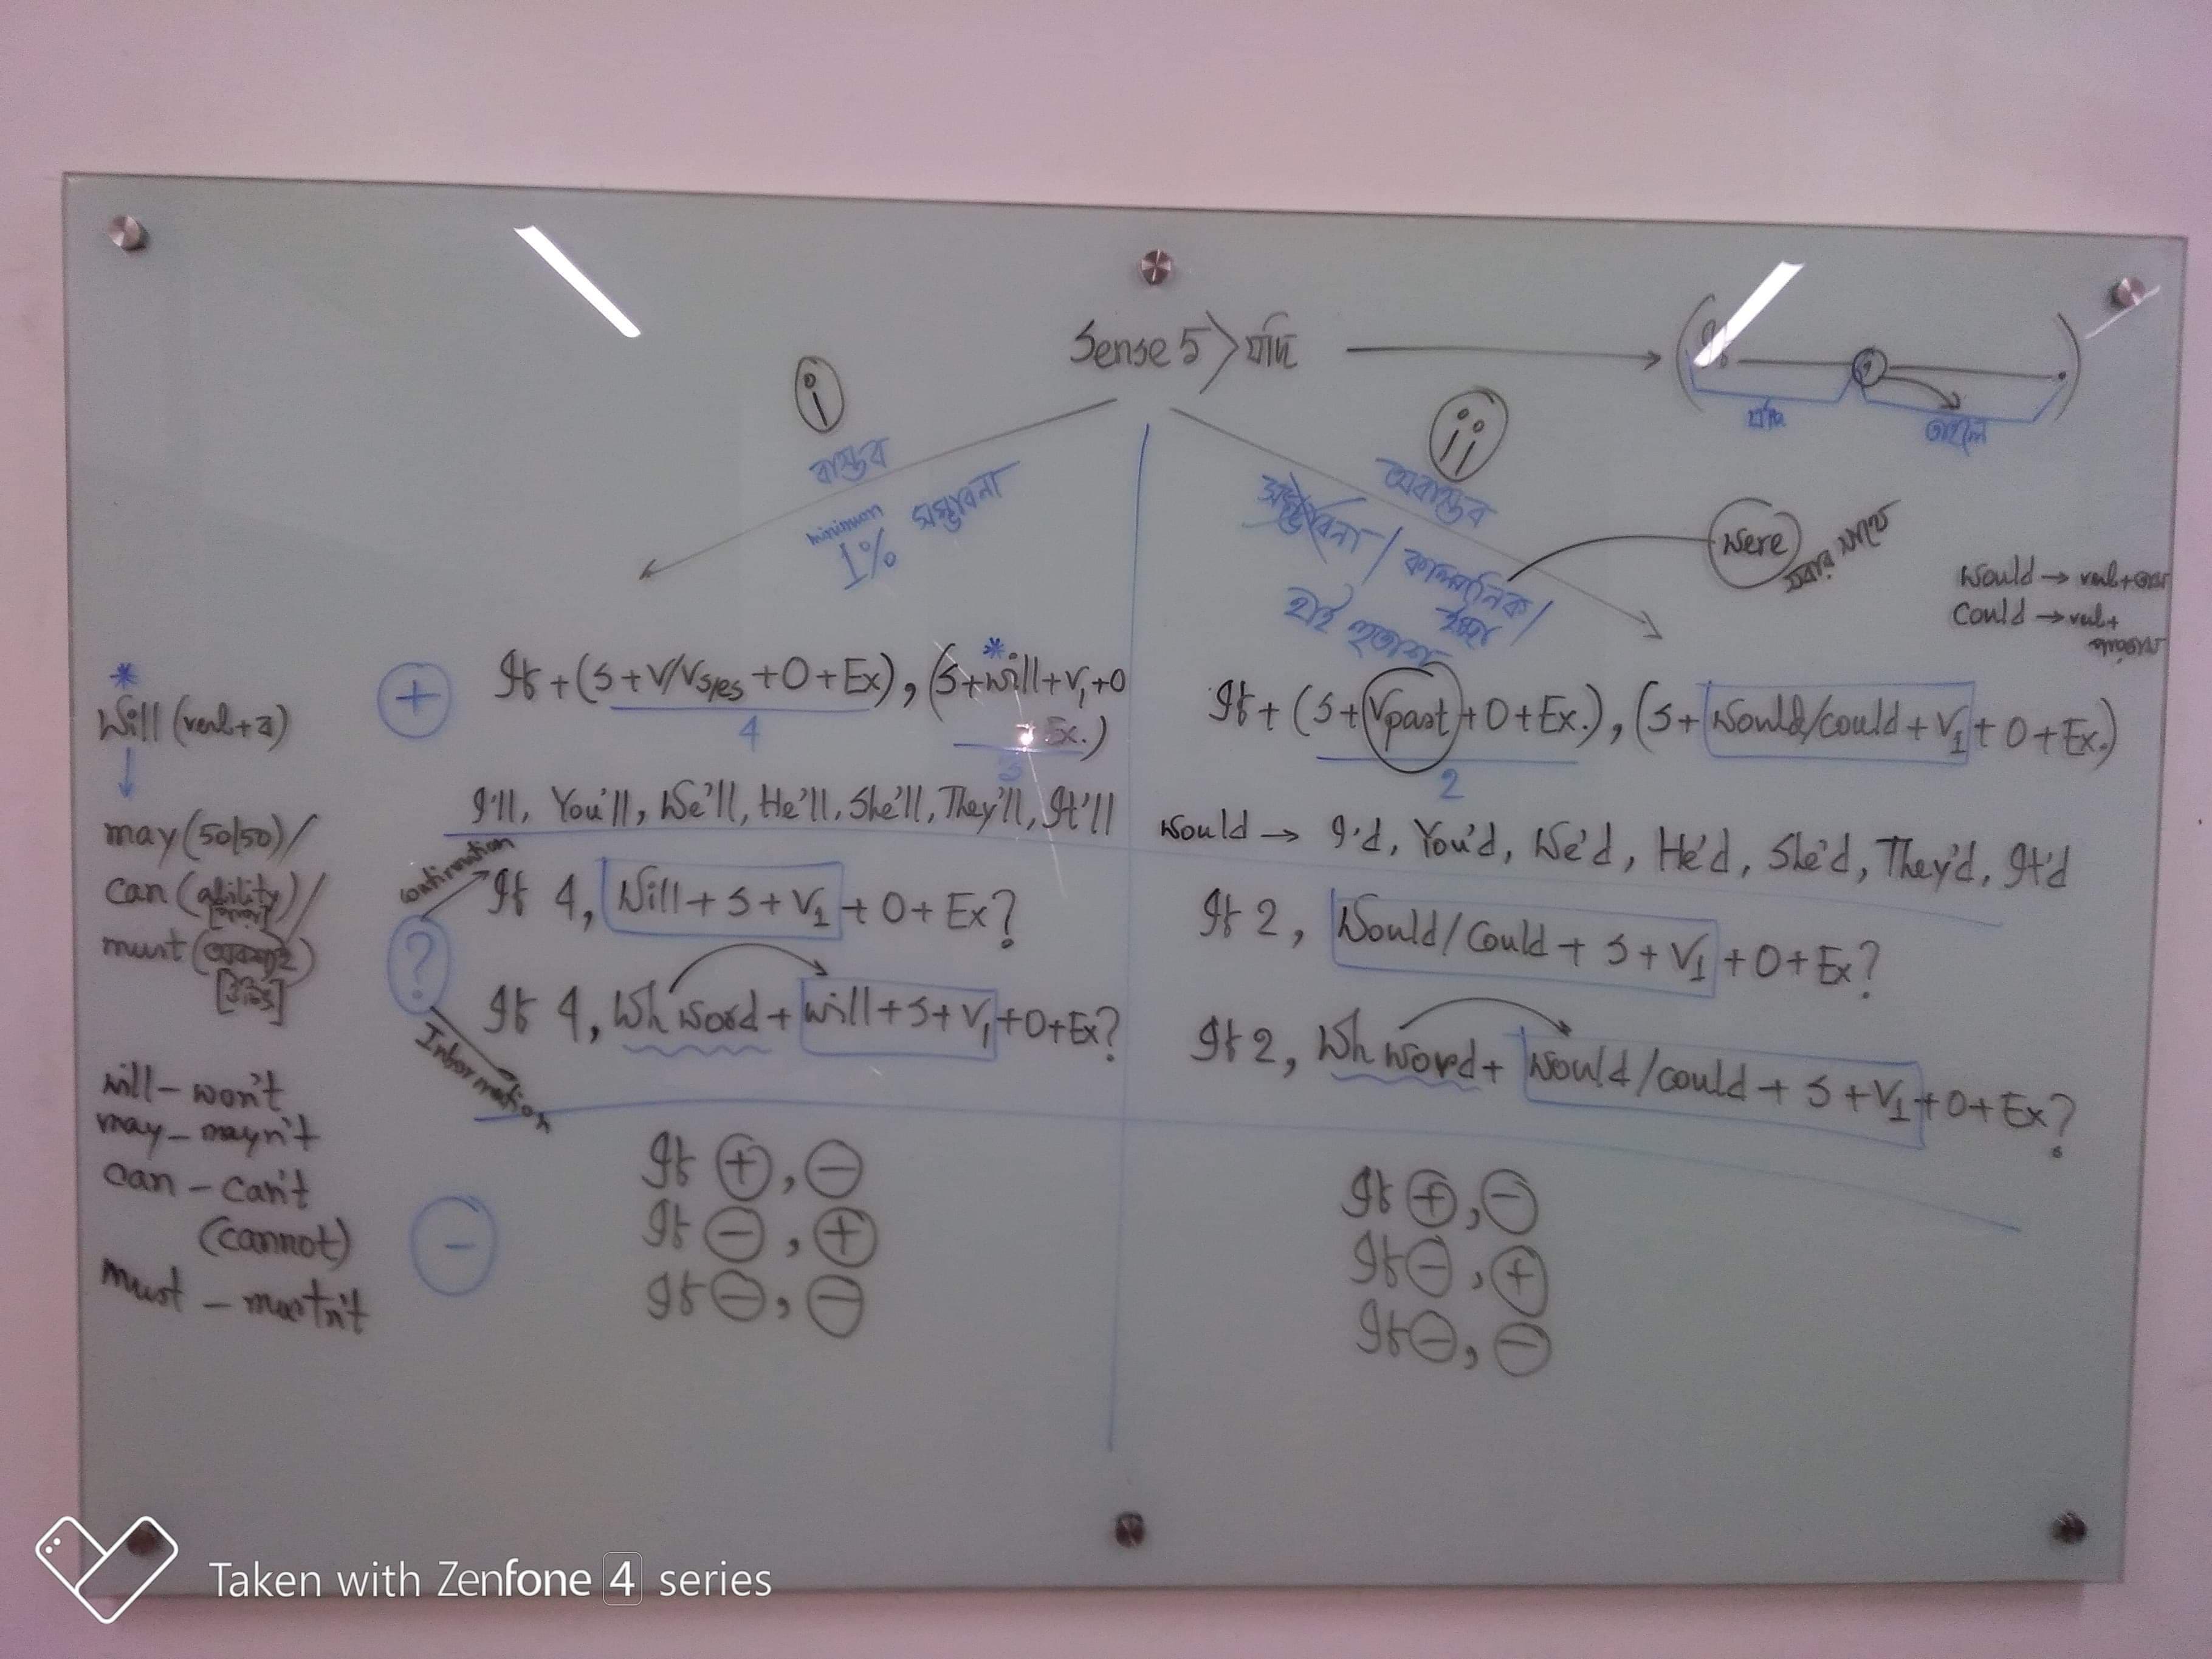 Sense 5 > যদি → (If ——— , ——— .)
যদি তাহলে
i
বাস্তব
minimum 1% সম্ভাবনা
ii
অবাস্তব
অসম্ভাবনা / কাল্পনিক / ইচ্ছা
were
সবার সাথে
Would → verb+
Could → verb+
*
Will (verb+ব)
↓
may (50/50) /
can (ability) /
must
will – won't
may – mayn't
can – can't
(cannot)
must – mustn't
+
If + (S+V/Vs/es +O+Ex), (S+will+V1+O
+Ex.)
4
3
I'll, You'll, We'll, He'll, She'll, They'll, It'll
?
confirmation
If 4, Will + S + V1 + O + Ex?
If 4, Wh word + will + S + V1 + O + Ex?
Information
-
If ⊕, ⊖
If ⊖, ⊕
If ⊖, ⊖
If + (S+Vpast+O+Ex.), (S+Would/could+V1+O+Ex.)
2
Would → I'd, You'd, We'd, He'd, She'd, They'd, It'd
If 2, Would/Could + S + V1 + O + Ex?
If 2, Wh word + Would/could + S + V1 + O + Ex?
If ⊕, ⊖
If ⊖, ⊕
If ⊖, ⊖
Taken with Zenfone 4 series